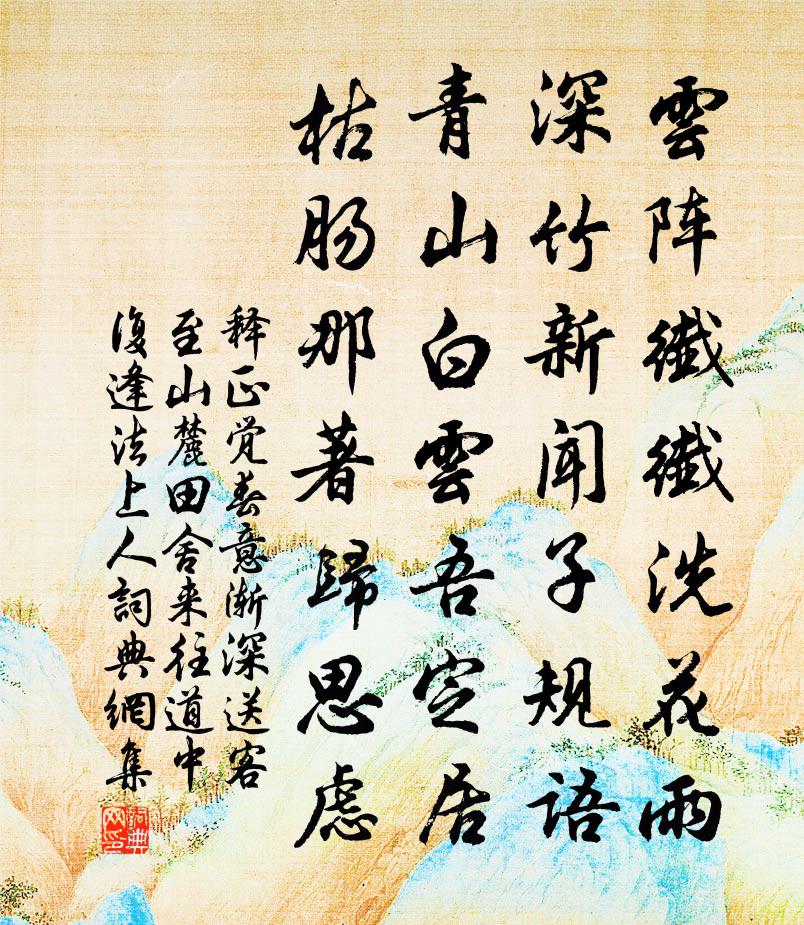 雲阵纖纖洗花雨
深竹新闻子規语
青山白雲吾定居
枯肠那著歸思虑
释正觉春意渐深送客
至山麓田舍来往道中
復逢法上人詞典網集
詞典網印